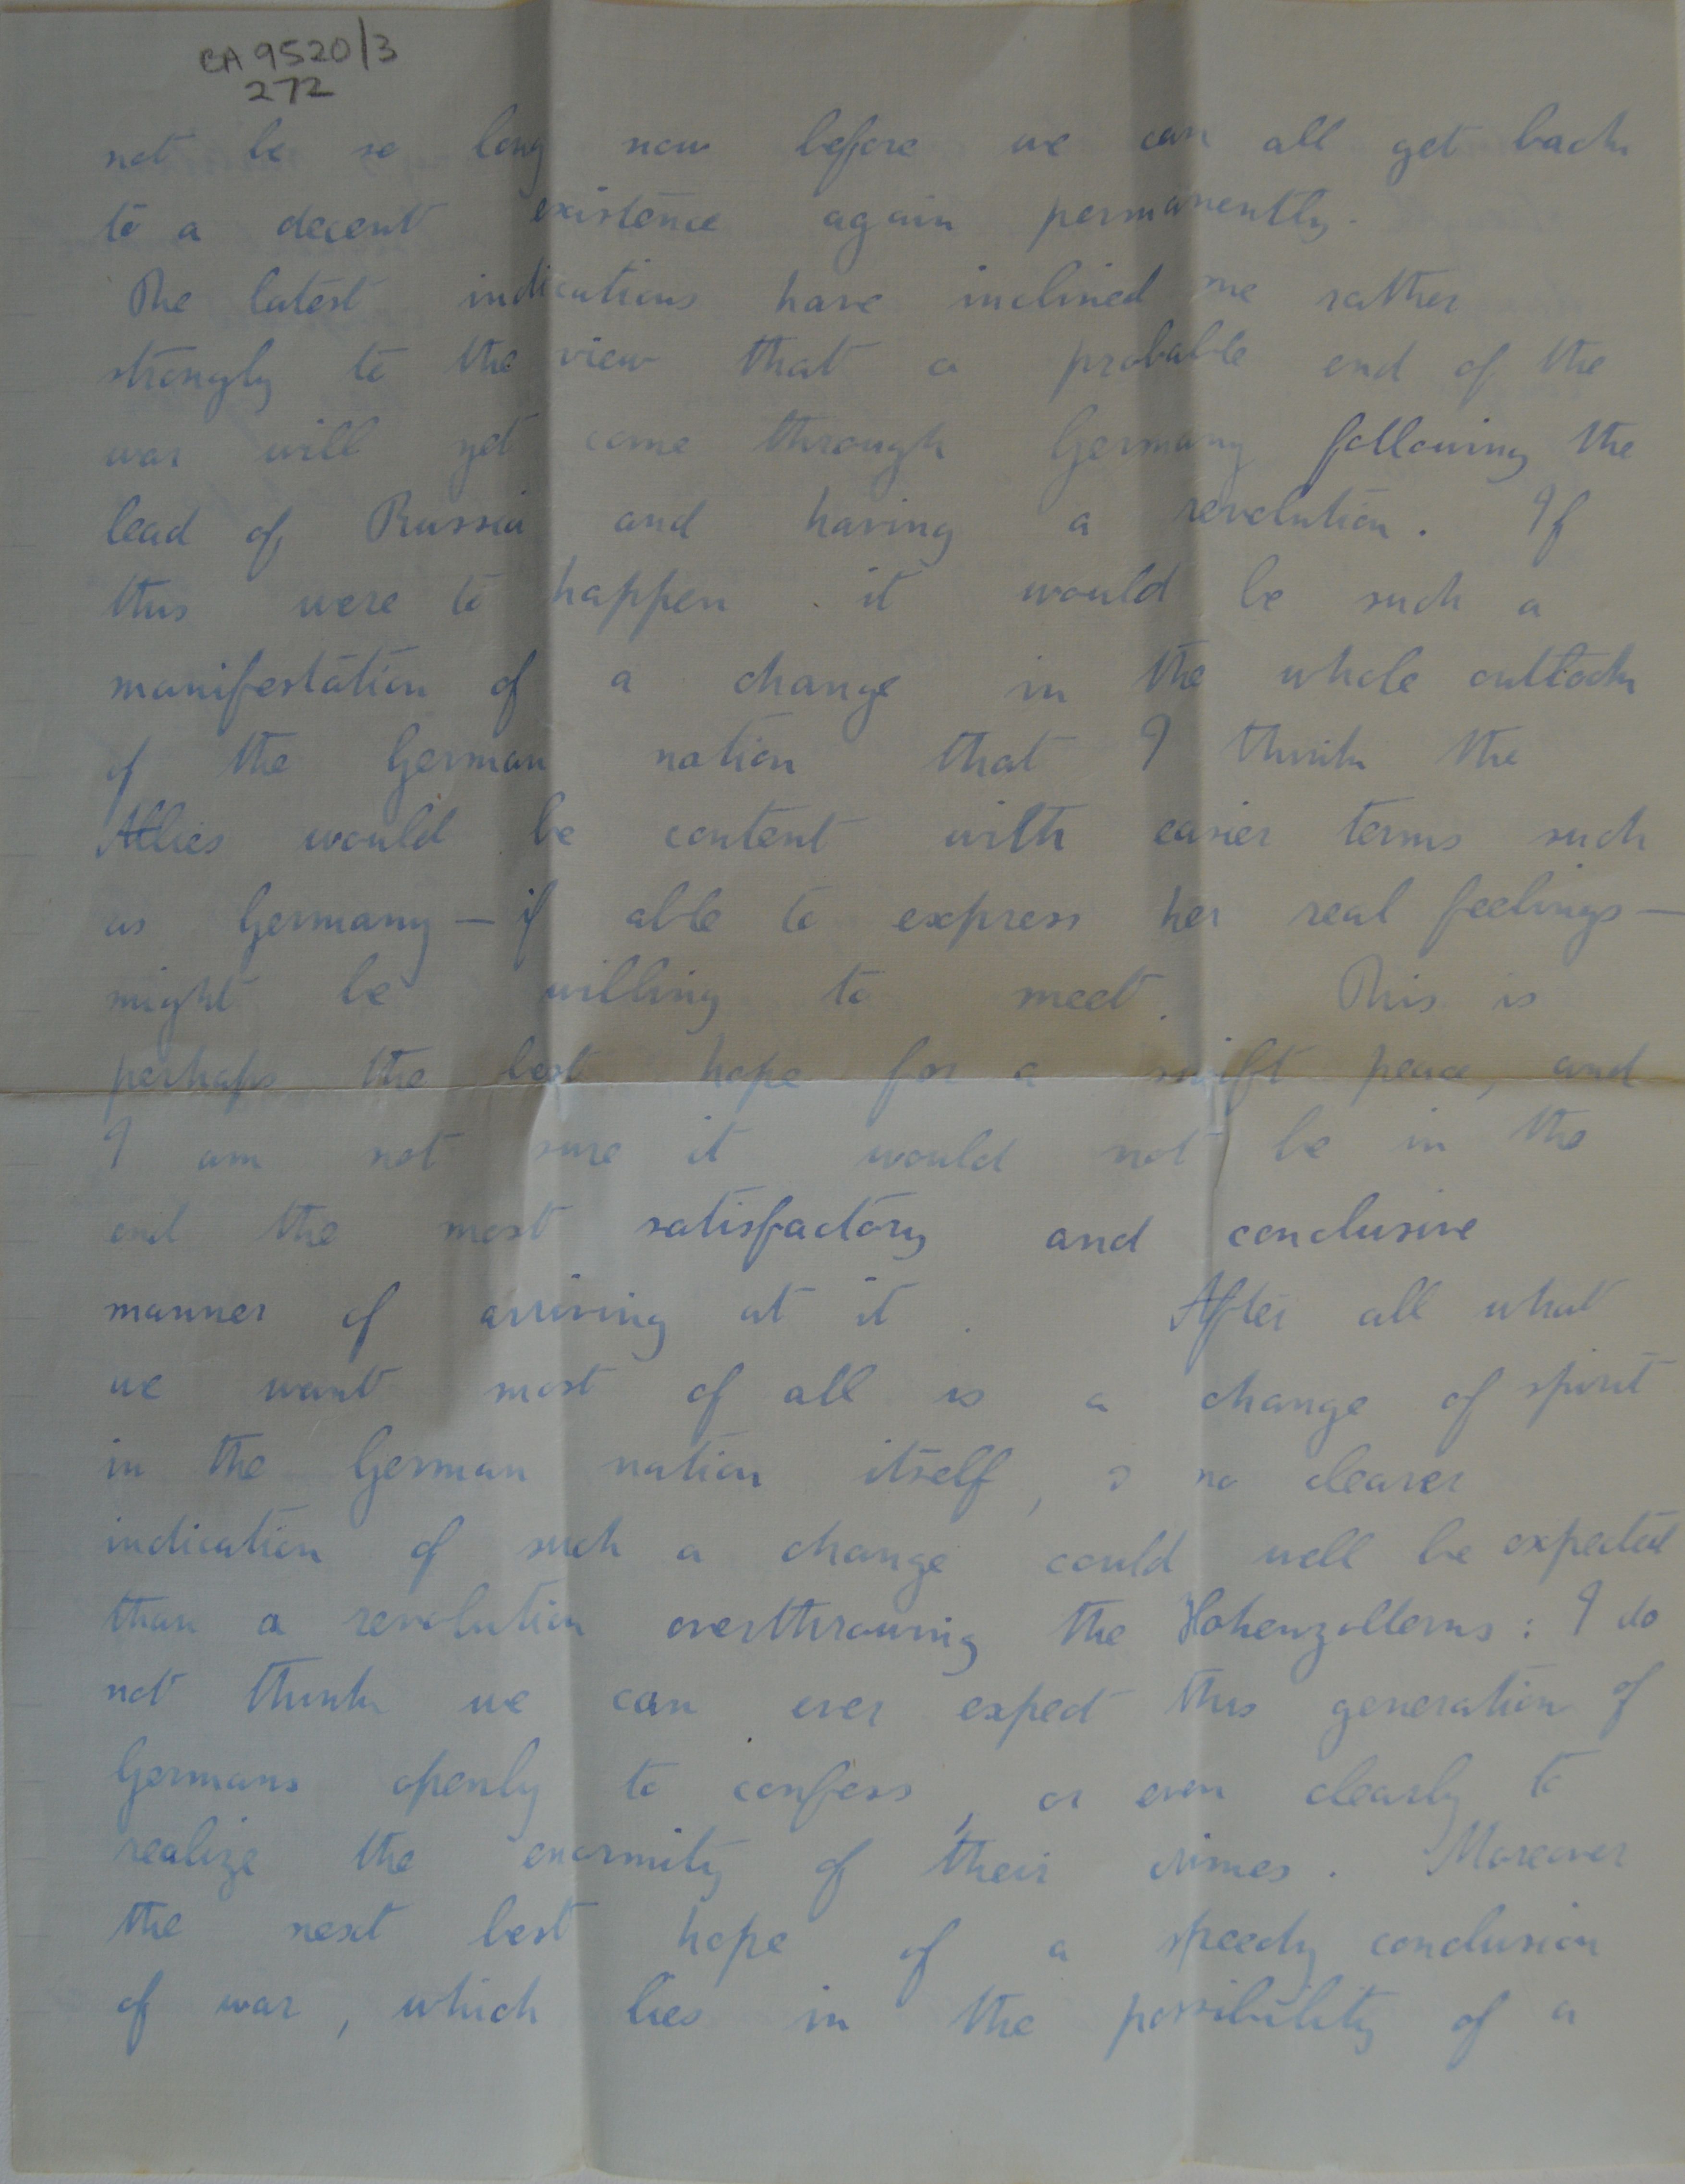 CA 9520/3
272
not be so long now before we can all get back
to a decent existence again permanently.
The latest indications have inclined me rather
strongly to the view that a probable end of the
war will yet come through Germany following the
lead of Russia and having a revolution. If
this were to happen it would be such a
manifestation of a change in the whole outlook
of the German nation that I think the
Allies would be content with easier terms such
as Germany — if able to express her real feelings —
might be willing to meet. This is
perhaps the best hope for a swift peace, and
I am not sure it would not be in the
end the most satisfactory and conclusive
manner of arriving at it. After all what
we want most of all is a change of spirit
in the German nation itself, & no clearer
indication of such a change could well be expected
than a revolution overthrowing the Hohenzollerns: I do
not think we can ever expect this generation of
Germans openly to confess, or even clearly to
realize the enormity of their crimes. Moreover
the next best hope of a speedy conclusion
of war, which lies in the possibility of a